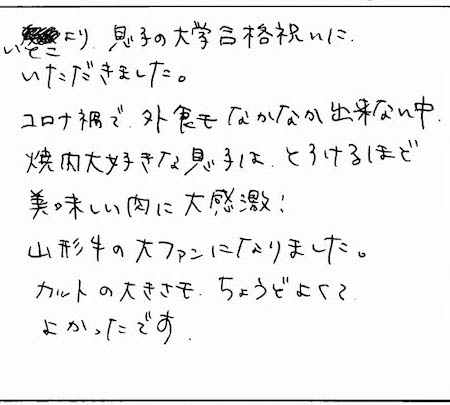 いとこより、息子の大学合格祝いに
いただきました。
コロナ禍で、外食もなかなか出来ない中、
焼肉大好きな息子は、とろけるほど
美味しい肉に大感激!
山形牛の大ファンになりました。
カットの大きさも、ちょうどよくて
よかったです。